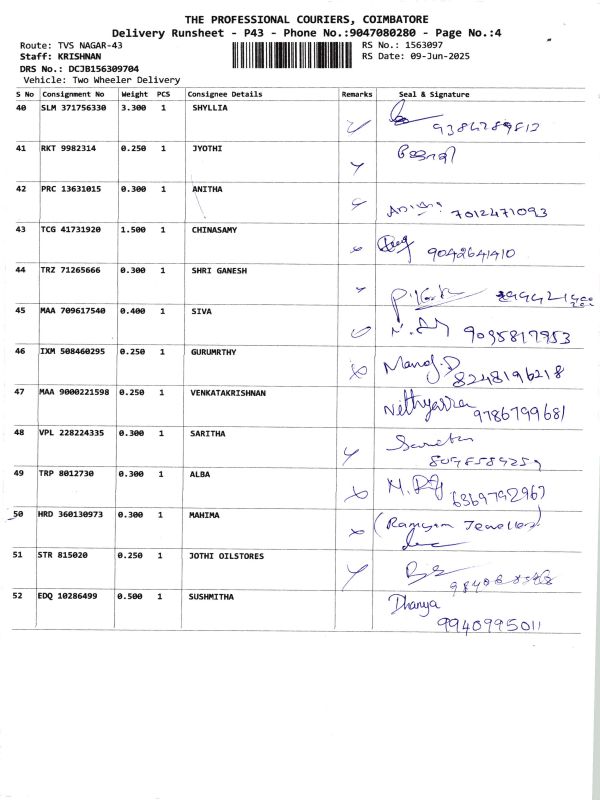 THE PROFESSIONAL COURIERS, COIMBATORE
Delivery Runsheet - P43 - Phone No.:9047080280 - Page No.:4
Route: TVS NAGAR-43 RS No.: 1563097
Staff: KRISHNAN RS Date: 09-Jun-2025
DRS No.: DCJB156309704
Vehicle: Two Wheeler Delivery
S No Consignment No Weight PCS Consignee Details Remarks Seal & Signature
40 SLM 371756330 3.300 1 SHYLLIA
41 RKT 9982314 0.250 1 JYOTHI
42 PRC 13631015 0.300 1 ANITHA
7012471093
43 TCG 41731920 1.500 1 CHINASAMY
9042641410
44 TRZ 71265666 0.300 1 SHRI GANESH
45 MAA 709617540 0.400 1 SIVA
9095817953
46 IXM 508460295 0.250 1 GURUMRTHY
Manoj.D
8248196218
47 MAA 9000221598 0.250 1 VENKATAKRISHNAN
9786799681
48 VPL 228224335 0.300 1 SARITHA
Saritha
49 TRP 8012730 0.300 1 ALBA
6369792967
50 HRD 360130973 0.300 1 MAHIMA
Jewellers)
51 STR 815020 0.250 1 JOTHI OILSTORES
52 EDQ 10286499 0.500 1 SUSHMITHA
Dhanya
9940995011